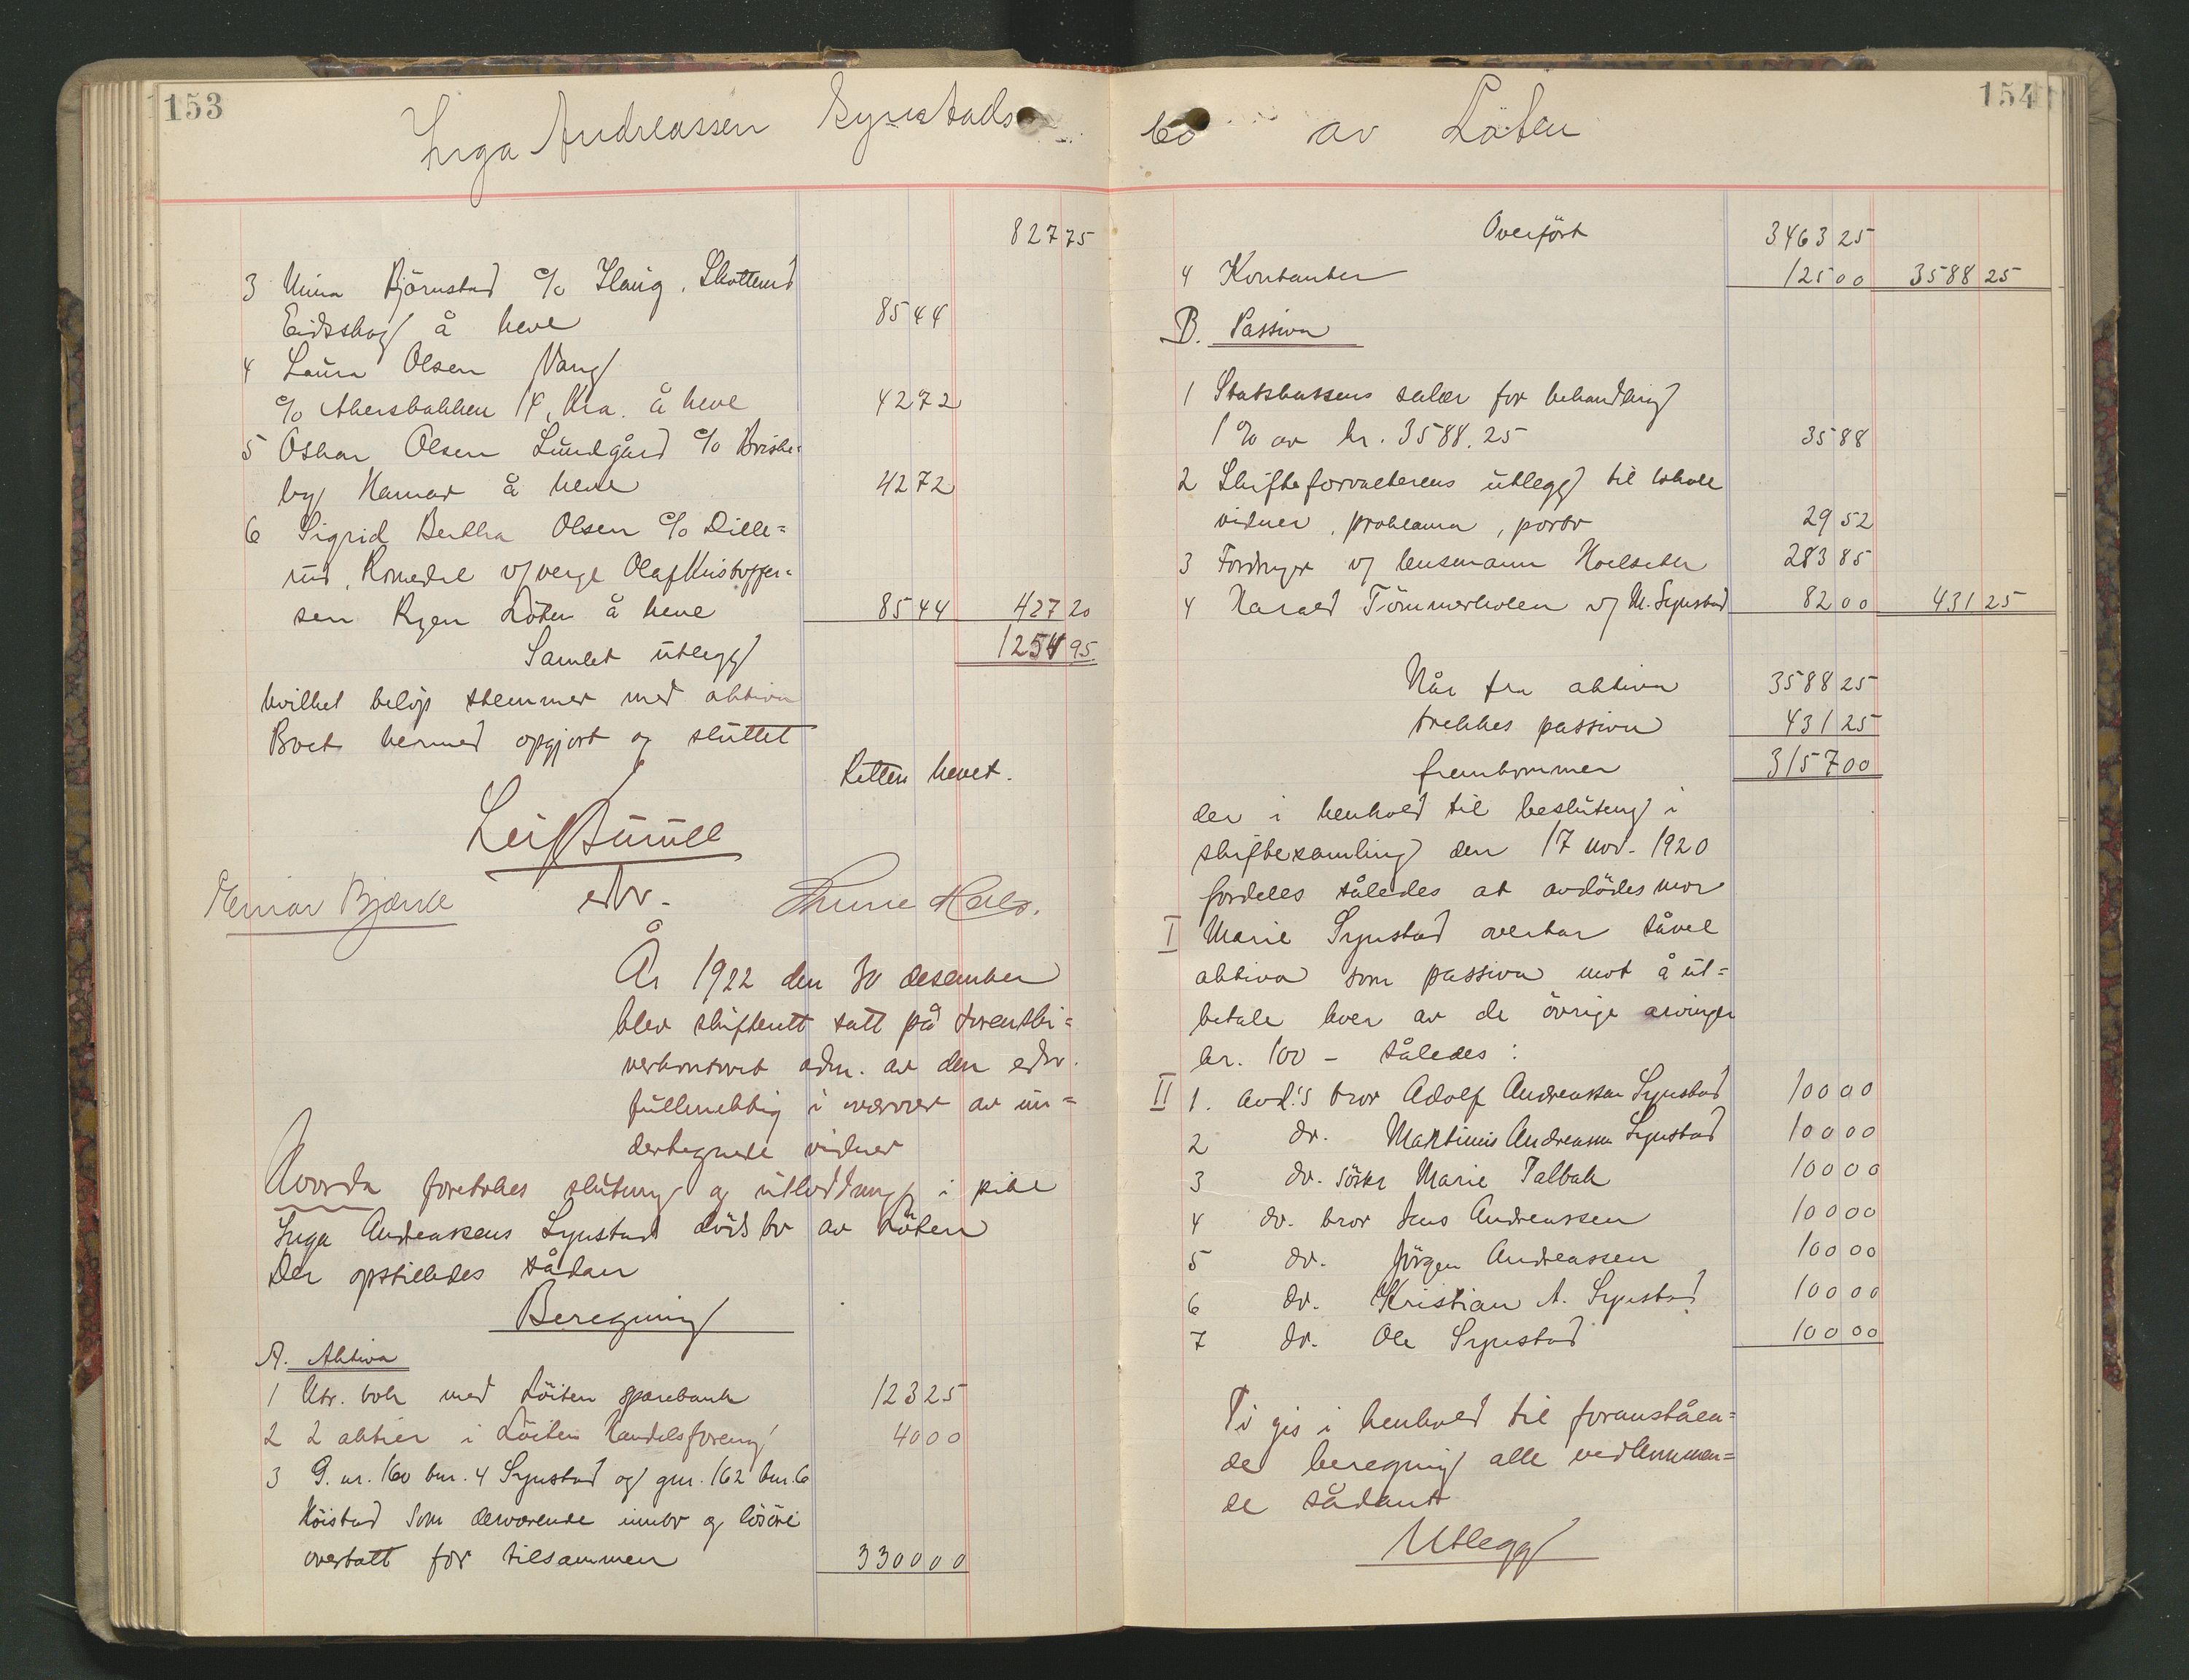 153
Inga Andreassen Synstads
827 75
3 Mina Björnstad c/o Haug, Skotterud
Eidskog å heve 85 44
4 Laura Olsen Vang
c/o Akersbakken 14, Kra. å heve 42 72
5 Oskar Olsen Lundgård c/o Briske-
by Hamar å heve 42 72
6 Sigrid Bertha Olsen c/o Dille=
rud, Romedal v/verge Olaf Kristoffer=
sen Ryen Löten å heve 85 44 427 20
Samlet utlegg 1254 95.
hvilket belöp stemmer med aktiva
Boet hermed opgjort og sluttet
Retten hevet.
Leif
edsv.
Einar Bjærke
År 1922 den 30 desember
blev skifterett satt på sorenskri=
verkontoret adm. av den edsv.
fullmektig i nærvær av un=
dertegnede vidner
Hvorda foretokes slutning og utlodning i pike
Inga Andreassens Synstad dödsbo av Löten
Der opstilledes sådan
Beregning
A. Aktiva
1 Utr. bok med Löiten sparebank 123 25
2 2 aktier i Löiten Handelsforening 40 00
3 G. nr. 160 bnr. 4 Synstad og gnr. 162 bnr. 6
Höistad som derværende innbo og lösöre
overtatt for tilsammen 3300 00
154
bo av Löten
Overfört 3463 25
4 Kontanter 125 00 3588 25
B. Passiva
1 Statskassens salær for behandling
1 % av kr. 3588.25 35 88
2 Skifteforvalterens utlegg til lokale
vidner, proklama, porto 29 52
3 Fordringer v/ lensmann Hoelseter 283 85
4 Harald Tömmerholen v/ M. Synstad 82 00 431 25
Når fra aktiva 3588 25
trekkes passiva 431 25
fremkommer 3157 00
der i henhold til beslutning i
skiftesamling den 17 nov. 1920
fordeles således at avdödes mor
I Marie Synstad overtar såvel
aktiva som passiva mot å ut=
betale hver av de övrige arvinger
kr. 100 - således:
II 1. avd.'s bror Adolf Andreassen Synstad 100 00
2 do. Martinus Andreassen Synstad 100 00
3 do. söster Marie Talbak 100 00
4 do. bror Jens Andreassen 100 00
5 do. Jörgen Andreassen 100 00
6 do. Kristian A. Synstad 100 00
7 do. Ole Synstad 100 00
Ti gis i henhold til foranståen=
de beregning alle vedkommen=
de sådant
Utlegg